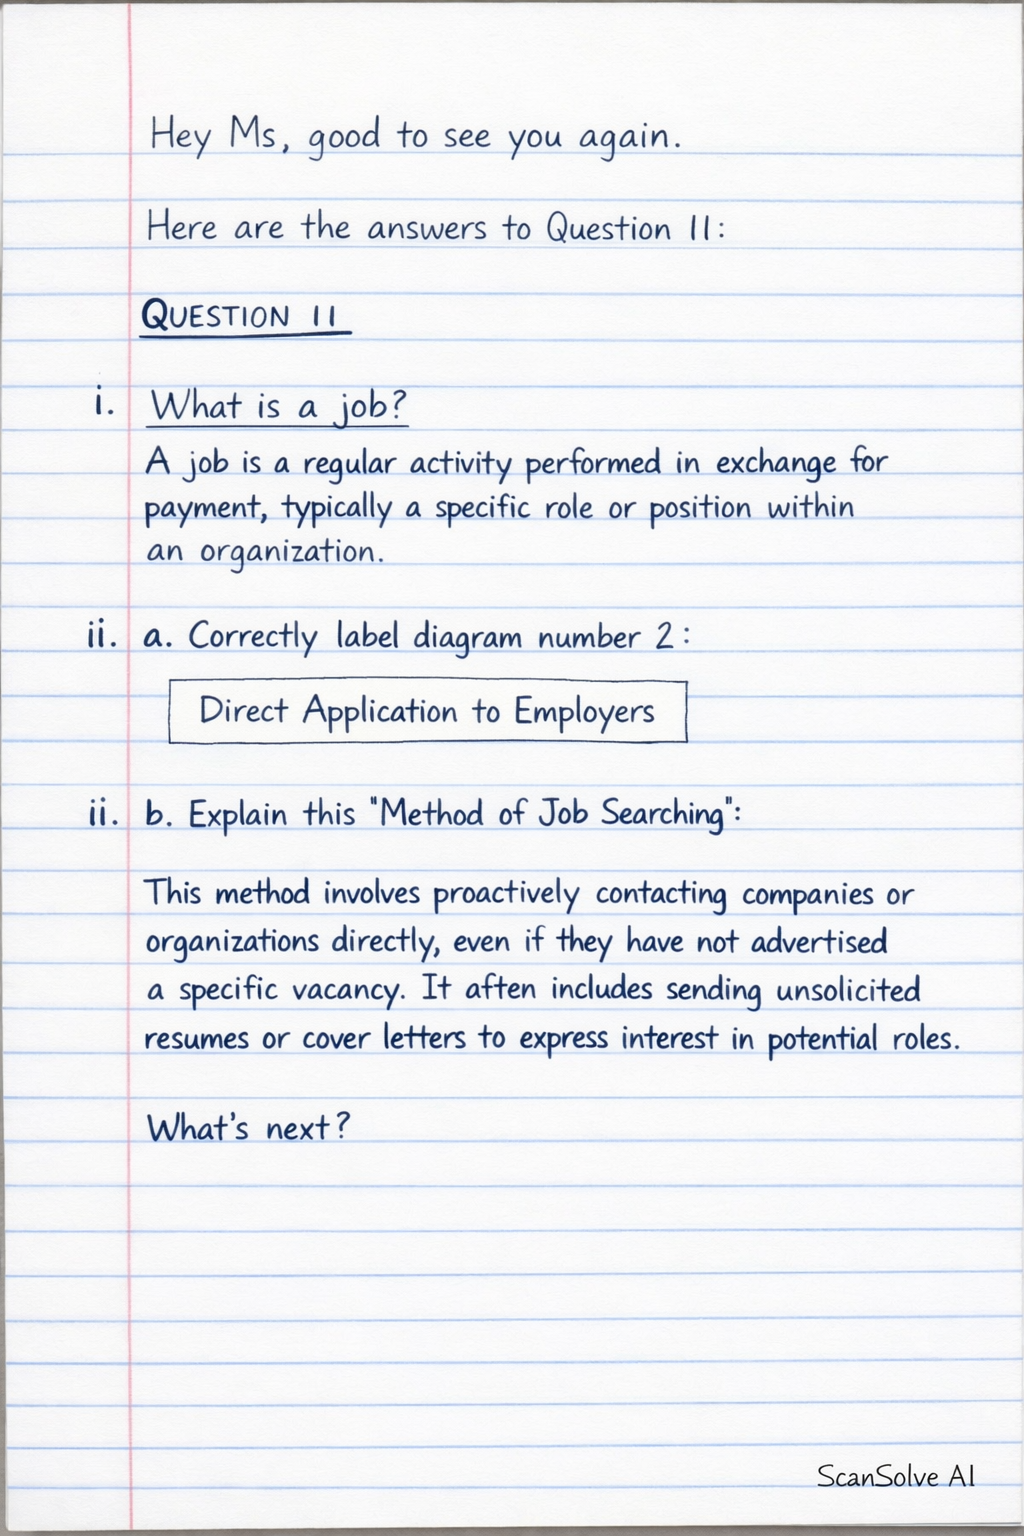 Hey Ms, good to see you again.
Here are the answers to Question 11:
QUESTION 11
i. What is a job?
A job is a regular activity performed in exchange for
payment, typically a specific role or position within
an organization.
ii. a. Correctly label diagram number 2:
Direct Application to Employers
ii. b. Explain this "Method of Job Searching":
This method involves proactively contacting companies or
organizations directly, even if they have not advertised
a specific vacancy. It often includes sending unsolicited
resumes or cover letters to express interest in potential roles.
What's next?
ScanSolve AI